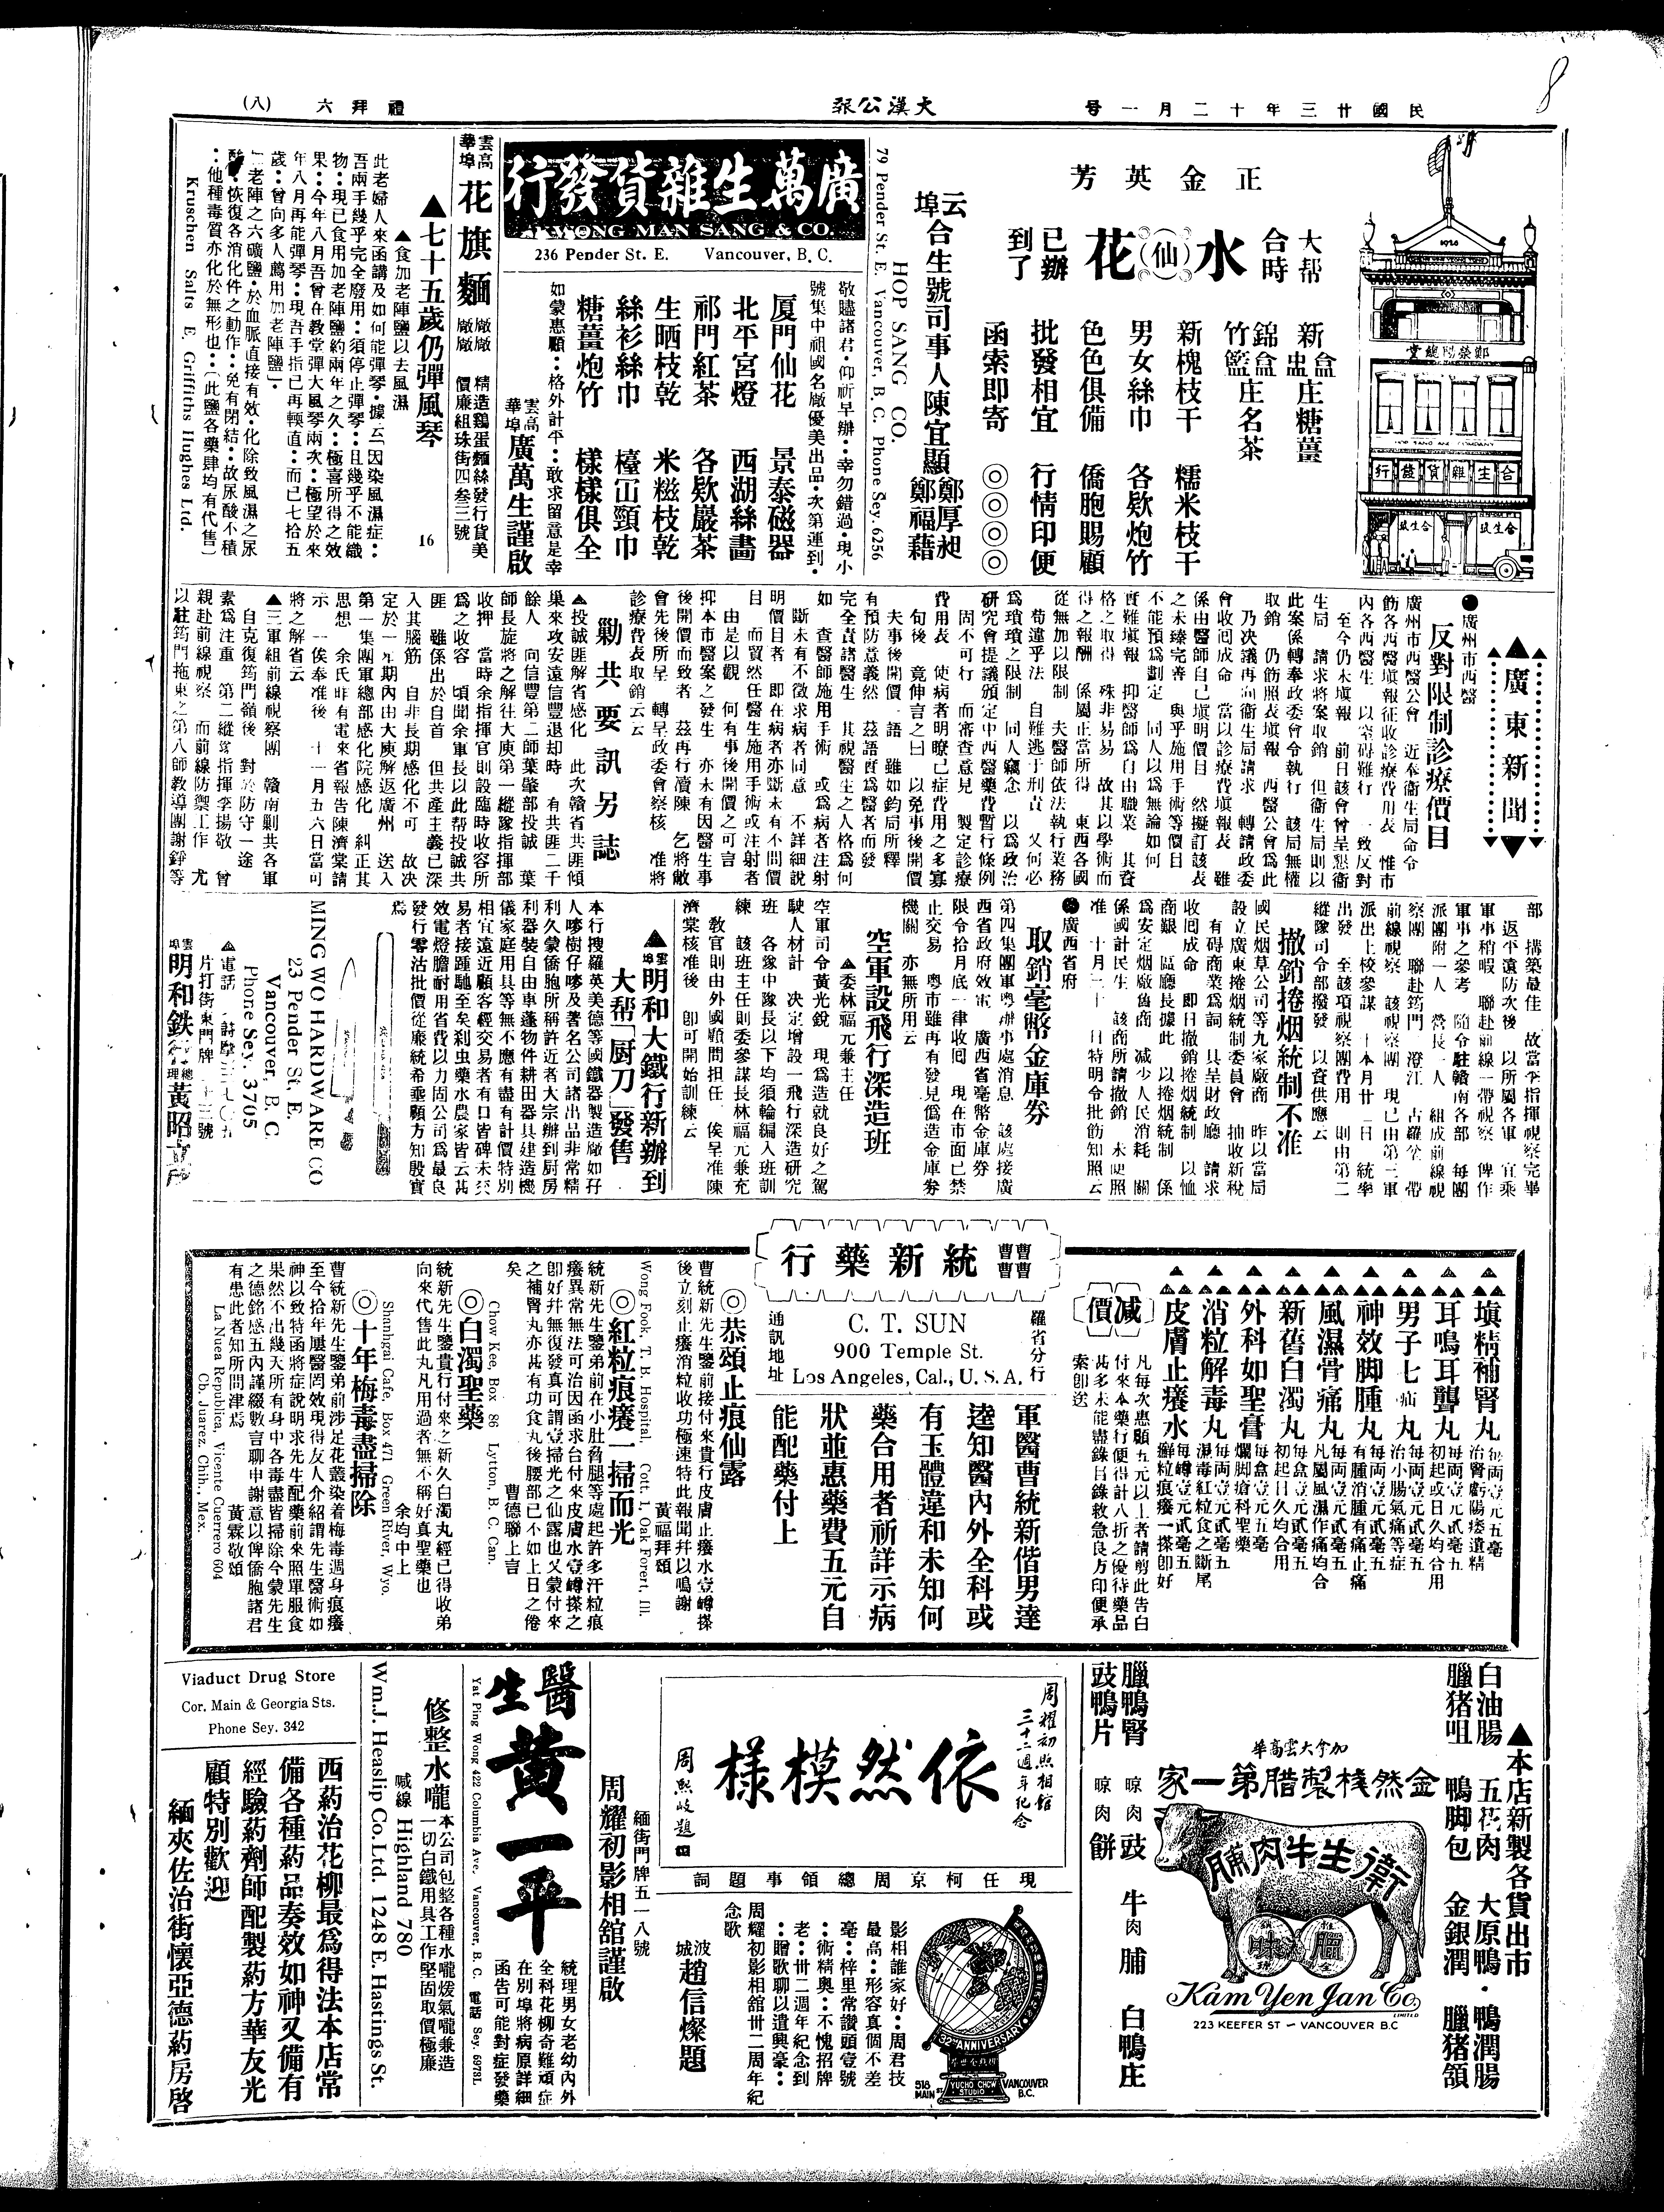 民國廿三年十二月一號
大漢公報
禮拜六
(八)
8
正金英芳
大帮
合時
水仙花
已辦
到了
新盒盅庄糖薑
錦盒竹籃庄名茶
新槐枝干 糯米枝干
男女絲巾 各欵炮竹
色色俱備 僑胞賜顧
批發相宜 行情印便
函索即寄 ◎◎◎◎
云埠合生號司事人陳宜顯 鄭厚昶 鄭福藉
HOP SANG CO.
79 Pender St. E. Vancouver, B. C. Phone Sey. 6256
1926
合生雜貨發行
廣萬生雜貨發行
KWONG MAN SANG & CO.
236 Pender St. E. Vancouver, B. C.
敬啟諸君·仰祈早辦··幸勿錯過·現小
號集中祖國名廠優美出品·次第運到·
厦門仙花 景泰磁器
北平宮燈 西湖絲畫
祁門紅茶 各欵巖茶
生晒枝乾 米糍枝乾
絲衫絲巾
糖薑炮竹 樣樣俱全
如蒙惠顧··格外計平··敢求留意是幸
雲高華埠 廣萬生謹啟
雲高華埠 花旗麵廠
精造鷄蛋麵絲發行貨美
價廉組珠街四叁三號
▲七十五歲仍彈風琴 16
▲食加老陣鹽以去風濕
此老婦人來函講及如何能彈琴·據云因染風濕症··
吾兩手幾乎完全廢用··須停止彈琴··且幾乎不能織
物··現已食用加老陣鹽約兩年之久··極喜所得之效
果··今年八月吾曾在教堂彈大風琴兩次··極望於來
年八月再能彈琴··現吾手指已再輭直··而已七拾五
歲··曾向多人薦用加老陣鹽
老陣之六礦鹽·於血脈直接有效·化除致風濕之尿
酸·恢復各消化件之動作··免有閉結··故尿酸不積
··他種毒質亦化於無形也··(此鹽各藥肆均有代售)
Kruschen Salts E. Griffiths Hughes Ltd.
▲廣東新聞▼
●廣州市西醫
反對限制診療價目
廣州市西醫公會 近奉衛生局命令
飭各西醫塡報征收診療費用表 惟市
內各西醫生 以窒碍難行 一致反對
至今仍未塡報 前日該會曾呈懇衛
生局 請求將案取銷 但衛生局則以
此案係轉奉政委會令執行 該局無權
取銷 仍飭照表塡報 西醫公會爲此
乃决議再向衛生局請求 轉請政委
會收囘成命 當以診療費塡報表 雖
係由醫師自己塡明價目 然擬訂該表
之未臻完善 與乎施用手術等價目
不能預爲劃定 同人以爲無論如何
實難塡報 抑醫師爲自由職業 其資
格之取得 殊非易易 故其以學術而
得之報酬 係屬正當所得 東西各國
從無加以限制 夫醫師依法執行業務
苟違乎法 自難逃于刑責 又何必
爲瑣瑣之限制 同人竊念 以爲政治
研究會提議頒定中西醫藥費暫行條例
固不可行 而審查意見 製定診療
費用表 使病者明瞭己症費用之多寡
句後 竟伸言之曰 以免事後開價
夫事後開價一語 雖如鈞局所釋
有預防意義然 茲語旣爲醫者而發
完全責諸醫生 其視醫生之人格爲何
如 查醫師施用手術 或爲病者注射
斷未有不徵求病者同意 不詳細說
明價目者 即在病者亦斷未有不問價
目 而貿然任醫生施用手術或注射者
由是以觀 何有事後開價之可言
抑本市醫案之發生 亦未有因醫生事
後開價而致者 茲再行瀆陳 乞將敝
會先後所呈 轉呈政委會察核 准將
診療費表取銷云云
勦共要訊另誌
▲投誠匪解省感化 此次贛省共匪傾
巢來攻安遠信豐退却時 有共匪二千
餘人 向信豐第二師葉肇部投誠 葉
師長旋將之解往大庾第一縱隊指揮部
收押 當時余指揮官則設臨時收容所
爲之收容 頃聞余軍長以此帮投誠共
匪 雖係出於自首 但共產主義已深
入其腦筋 自非長期感化不可 故决
定於一星期內由大庾解返廣州 送入
第一集團軍總部感化院感化 糾正其
思想 余氏昨有電來省報告陳濟棠請
示 一俟奉准後 十一月五六日當可
將之解省云
▲三軍組前線視察團 贛南剿共各軍
自克復筠門嶺後 對於防守一途
素爲注重 第二縱隊指揮李揚敬 曾
親赴前線視察 而前線防禦工作 尤
以駐筠門拖東之第八師教導團謝錚等
部 搆築最佳 故當李指揮視察完畢
返平遠防次後 以所屬各軍 宜乘
軍事稍暇 聯赴前線一帶視察 俾作
軍事之參考 隨令駐贛南各部 每團
派團附一人 營長一人 組成前線視
察團 聯赴筠門 澄江 占羅坌一帶
前線視察 該視察團 現已由第三軍
派出上校參謀 于本月廿一日 統率
出發 至該項視察團費用 則由第二
縱隊司令部撥發 以資供應云
撤銷捲烟統制不准
國民烟草公司等九家廠商 昨以當局
設立廣東捲烟統制委員會 抽收新稅
有碍商業爲詞 具呈財政廳 請求
收囘成命 即日撤銷捲烟統制 以恤
商艱 區廳長據此 以捲烟統制 係
爲安定烟廠魯商 减少人民消耗 關
係國計民生 該商所請撤銷 未便照
准 十月二十一日特明令批飭知照云
●廣西省府
取銷毫幣金庫券
第四集團軍粵辦事處消息 該處接廣
西省政府效電 廣西省毫幣金庫券
限令拾月底一律收囘 現在市面已禁
止交易 粵市雖再有發見僞造金庫券
機關 亦無所用云
空軍設飛行深造班
▲委林福元兼主任
空軍司令黃光銳 現爲造就良好之駕
駛人材計 决定增設一飛行深造研究
班 各隊中隊長以下均須輪編入班訓
練 該班主任則委參謀長林福元兼充
教官則由外國顧問担任 俟呈准陳
濟棠核准後 卽可開始訓練云
▲雲埠明和大鐵行新辦到
大帮「厨刀」發售
本行搜羅英美德等國鐵器製造廠如孖
人嘜樹仔嘜及著名公司諸出品非常精
利久蒙僑胞所稱許近者大宗辦到厨房
利器裝自由車蓬物件耕田器具建造機
儀家庭用具等無不應有盡有計價特別
相宜遠近顧客經交易者有口皆碑未交
易者接踵馳至矣剎虫藥水農家皆云甚
效電燈膽耐用省費以力固公司爲最良
發行零沽批價從廉統希垂顧方知殷實
爲
MING WO HARDWARE CO
23 Pender St. E.
Vancouver, B. C.
Phone Sey. 3705
片打街東門牌二十三號
雲埠明和鉄行 總理黃昭
統新藥行
羅省分行
C. T. SUN
900 Temple St.
Los Angeles, Cal., U. S. A.
通訊地址
軍醫曹統新偕男達
逵知醫內外全科或
有玉體違和未知何
藥合用者祈詳示病
狀並惠藥費五元自
能配藥付上
▲塡精補腎丸 每両壹元五毫 治腎虧陽痿遺精
▲耳鳴耳聾丸 每両壹元貳毫五 初起或日久均合用
▲男子七疝丸 每両壹元貳毫五 治小腸氣痛等症
▲神效脚腫丸 每両壹元貳毫五 有腫消腫有痛止痛
▲風濕骨痛丸 每両壹元貳毫五 凡屬風濕作痛均合
▲新舊白濁丸 每盒壹元貳毫五 初起日久均合用
▲外科如聖膏 每盒壹元五毫 爛脚瘡科聖藥
▲消粒解毒丸 每両壹元貳毫五 濕毒紅粒食之斷尾
▲皮膚止癢水 每罇壹元貳毫五 癬粒痕癢一搽卽好
减價
凡每次惠顧五元以上者請剪此告白
付來本藥行便得計八折之優待藥品
甚多未能盡錄目錄救急良方印便承
索卽送
◎恭頌止痕仙露
曹統新先生鑒前接付來貴行皮膚止癢水壹罇搽
後立刻止癢消粒收功極速特此報聞幷以鳴謝
黃福拜頌
Wong Fook, T. B. Hospital, Cott. 1, Oak Forert, Ill.
◎紅粒痕癢一掃而光
統新先生鑒弟前在小肚脅腿等處起許多汗粒痕
癢異常無法可治因函求台付來皮膚水壹罇搽之
卽好幷無復發真可謂壹掃光之仙露也又蒙付來
之補腎丸亦甚有功食丸後腰部已不如上日之倦
矣
曹德聯上言
Chow Kee, Box 86 Lytton, B. C. Can.
◎白濁聖藥
統新先生鑒貴行付來之新久白濁丸經已得收弟
向來代售此丸凡用過者無不稱好真聖藥也
余均中上
Shanhgai Cafe, Box 471 Green River, Wyo.
◎十年梅毒盡掃除
曹統新先生鑒弟前涉足花叢染着梅毒週身痕癢
至今拾年屢醫罔效現得友人介紹謂先生醫術如
神以致特函將症說明求先生配藥前來照單服食
果然不出幾天所有身中各毒盡皆掃除今蒙先生
之德銘感五內謹綴數言聊申謝意以俾僑胞諸君
有患此者知所問津焉
黃霖敬頌
La Nuea Republica, Vicente Guerrero 604
Cb. Juarez. Chih., Mex.
▲本店新製各貨出市
白油腸 五花肉 大原鴨·鴨潤腸
臘猪咀 鴨脚包 金銀潤 臘猪領
加拿大雲高華
金然棧製腊第一家
衛生牛肉脯
Kam Yen Jan Co.
LIMITED
223 KEEFER ST — VANCOUVER B.C
臘鴨腎 晾肉豉 牛肉脯 白鴨庄
豉鴨片 晾肉餅
周耀初照相館
三十二週年紀念
依然模樣
周熙岐題
現任柯京周總領事題詞
影相誰家好··周君技
最高··形容真個不差
毫··梓里常讚頭壹號
··術精奧··不愧招牌
老··卅二週年紀念到
··贈歌聊以遣興豪··
周耀初影相舘卅二周年紀
念歌
波城 趙信燦題
32nd ANNIVERSARY
YUCHO CHOW STUDIO
518 MAIN ST
VANCOUVER B.C.
緬街門牌五一八號
周耀初影相舘謹啟
醫生黃一平
統理男女老幼內外
全科花柳奇難頑症
在別埠將病原詳細
函告可能對症發藥
Yat Ping Wong 422 Columbia Ave. Vancouver, B. C. 電話 Sey. 6978L
修整水嚨
本公司包整各種水嚨媛氣嚨兼造
一切白鐵用具工作堅固取價極廉
喊線 Highland 780
Wm.J. Heaslip Co.Ltd. 1248 E. Hastings St.
Viaduct Drug Store
Cor. Main & Georgia Sts.
Phone Sey. 342
西葯治花柳最爲得法本店常
備各種葯品奏效如神又備有
經驗葯劑師配製葯方華友光
顧特別歡迎
緬夾佐治街懷亞德葯房啓